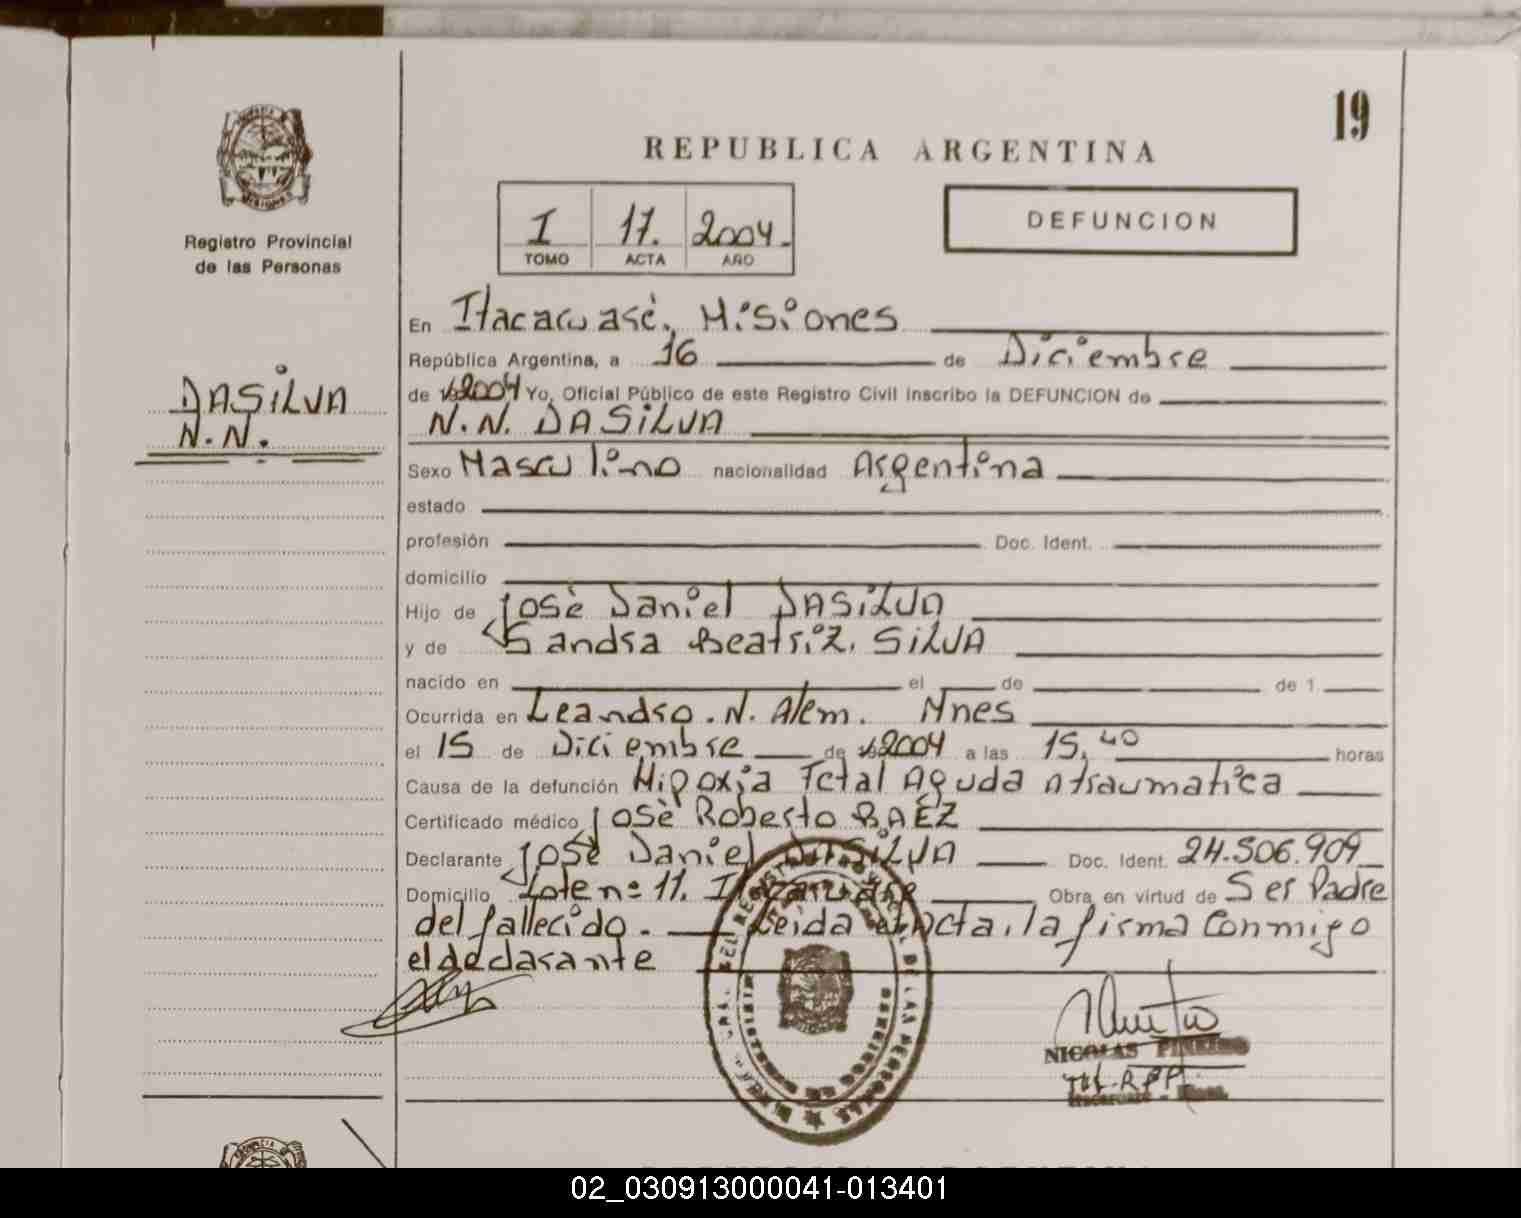 19
REPUBLICA ARGENTINA
Registro Provincial
de las Personas
I 17. 2004.
TOMO ACTA AÑO
DEFUNCION
DASILVA
N.N.
En Itacaruaré, Misiones
República Argentina, a 16 de Diciembre
de 2004 Yo, Oficial Público de este Registro Civil inscribo la DEFUNCION de
N.N. DASILVA
Sexo Masculino nacionalidad Argentina
estado
profesión Doc. Ident.
domicilio
Hijo de José Daniel DASILVA
y de Sandra Beatriz. SILVA
nacido en el de de 1
Ocurrida en Leandro. N. Alem. Mnes
el 15 de Diciembre de 2004 a las 15,40 horas
Causa de la defunción Hipoxia Fetal Aguda Atraumatica
Certificado médico José Roberto BAÉZ
Declarante José Daniel DASILVA Doc. Ident. 24.506.909
Domicilio Lote nº 11. Itacaruare Obra en virtud de Ser Padre
del fallecido. Leida el Acta, la firma Conmigo
el declarante
NICOLAS PIÑEIRO
02_030913000041-013401